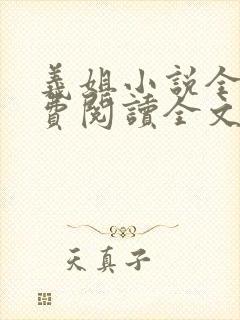 義姐小說全
費閱讀全文
天真子